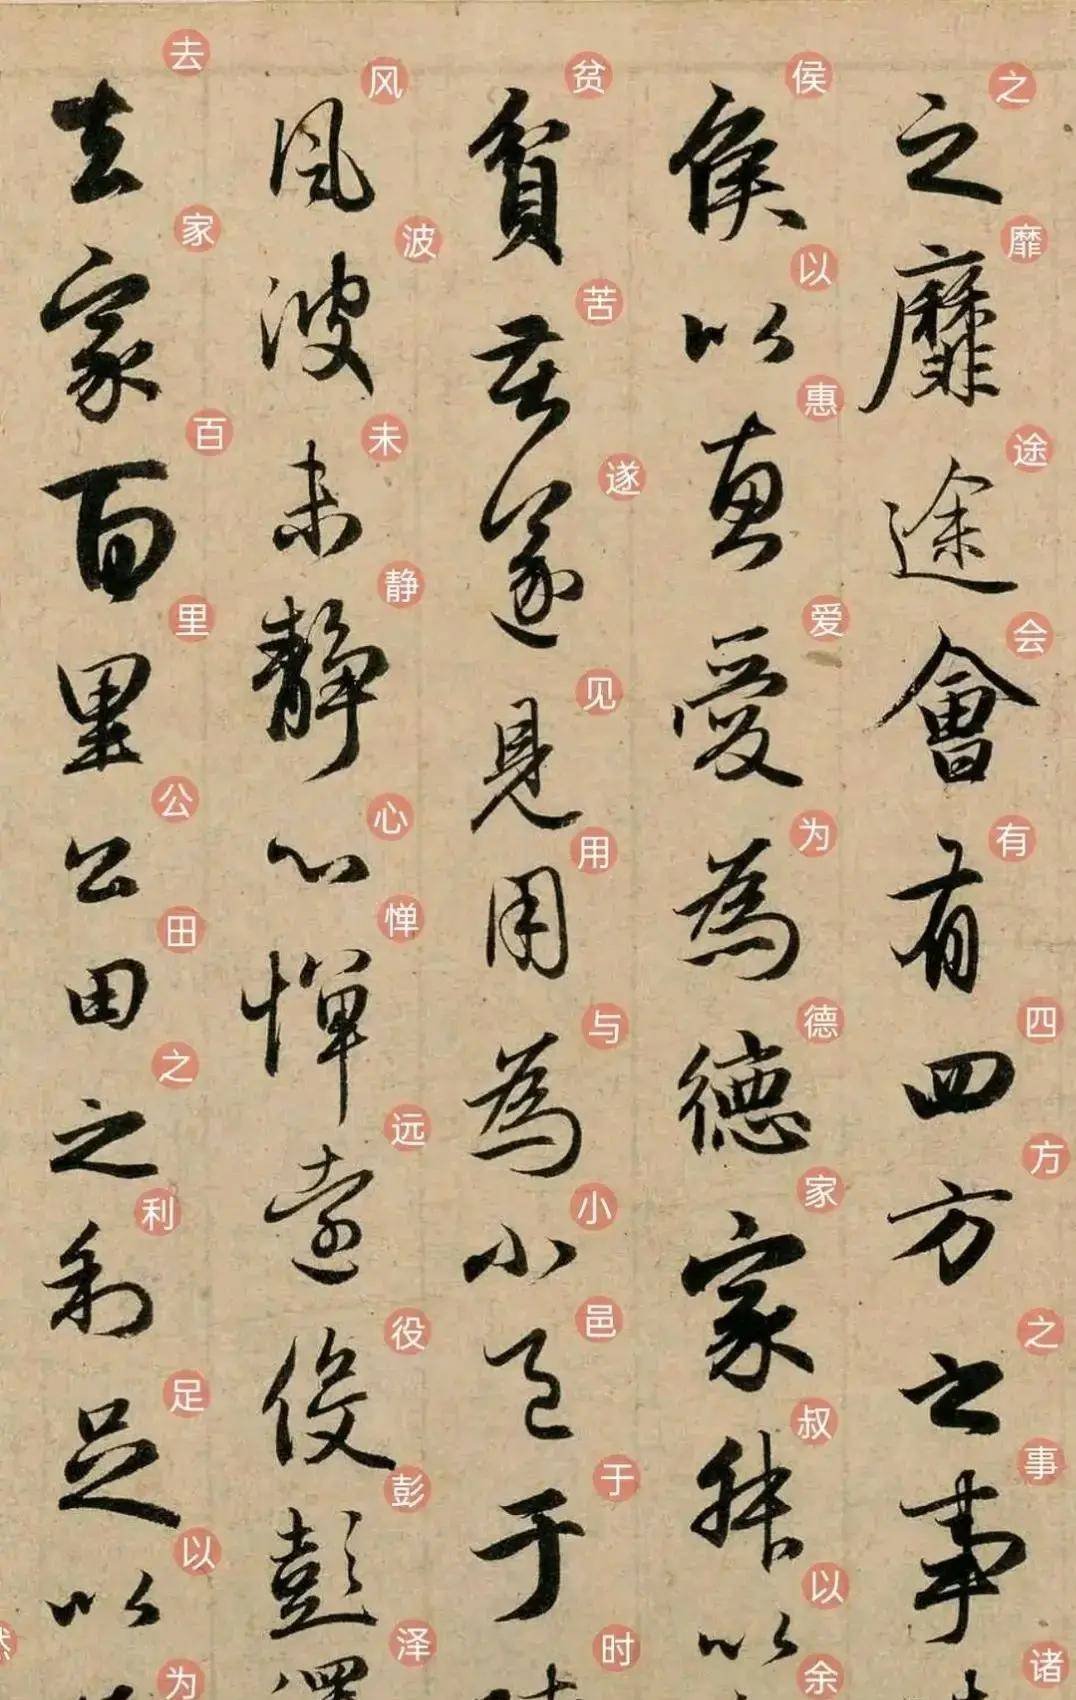 之靡途會有四方之事諸
侯以惠愛為德家叔以余
貧苦遂見用為小邑于時
風波未静心憚遠役彭澤
去家百里公田之利足以為
之靡途会有四方之事诸
侯以惠爱为德家叔以余
贫苦遂见用与小邑于时
风波未静心惮远役彭泽
去家百里公田之利足以为